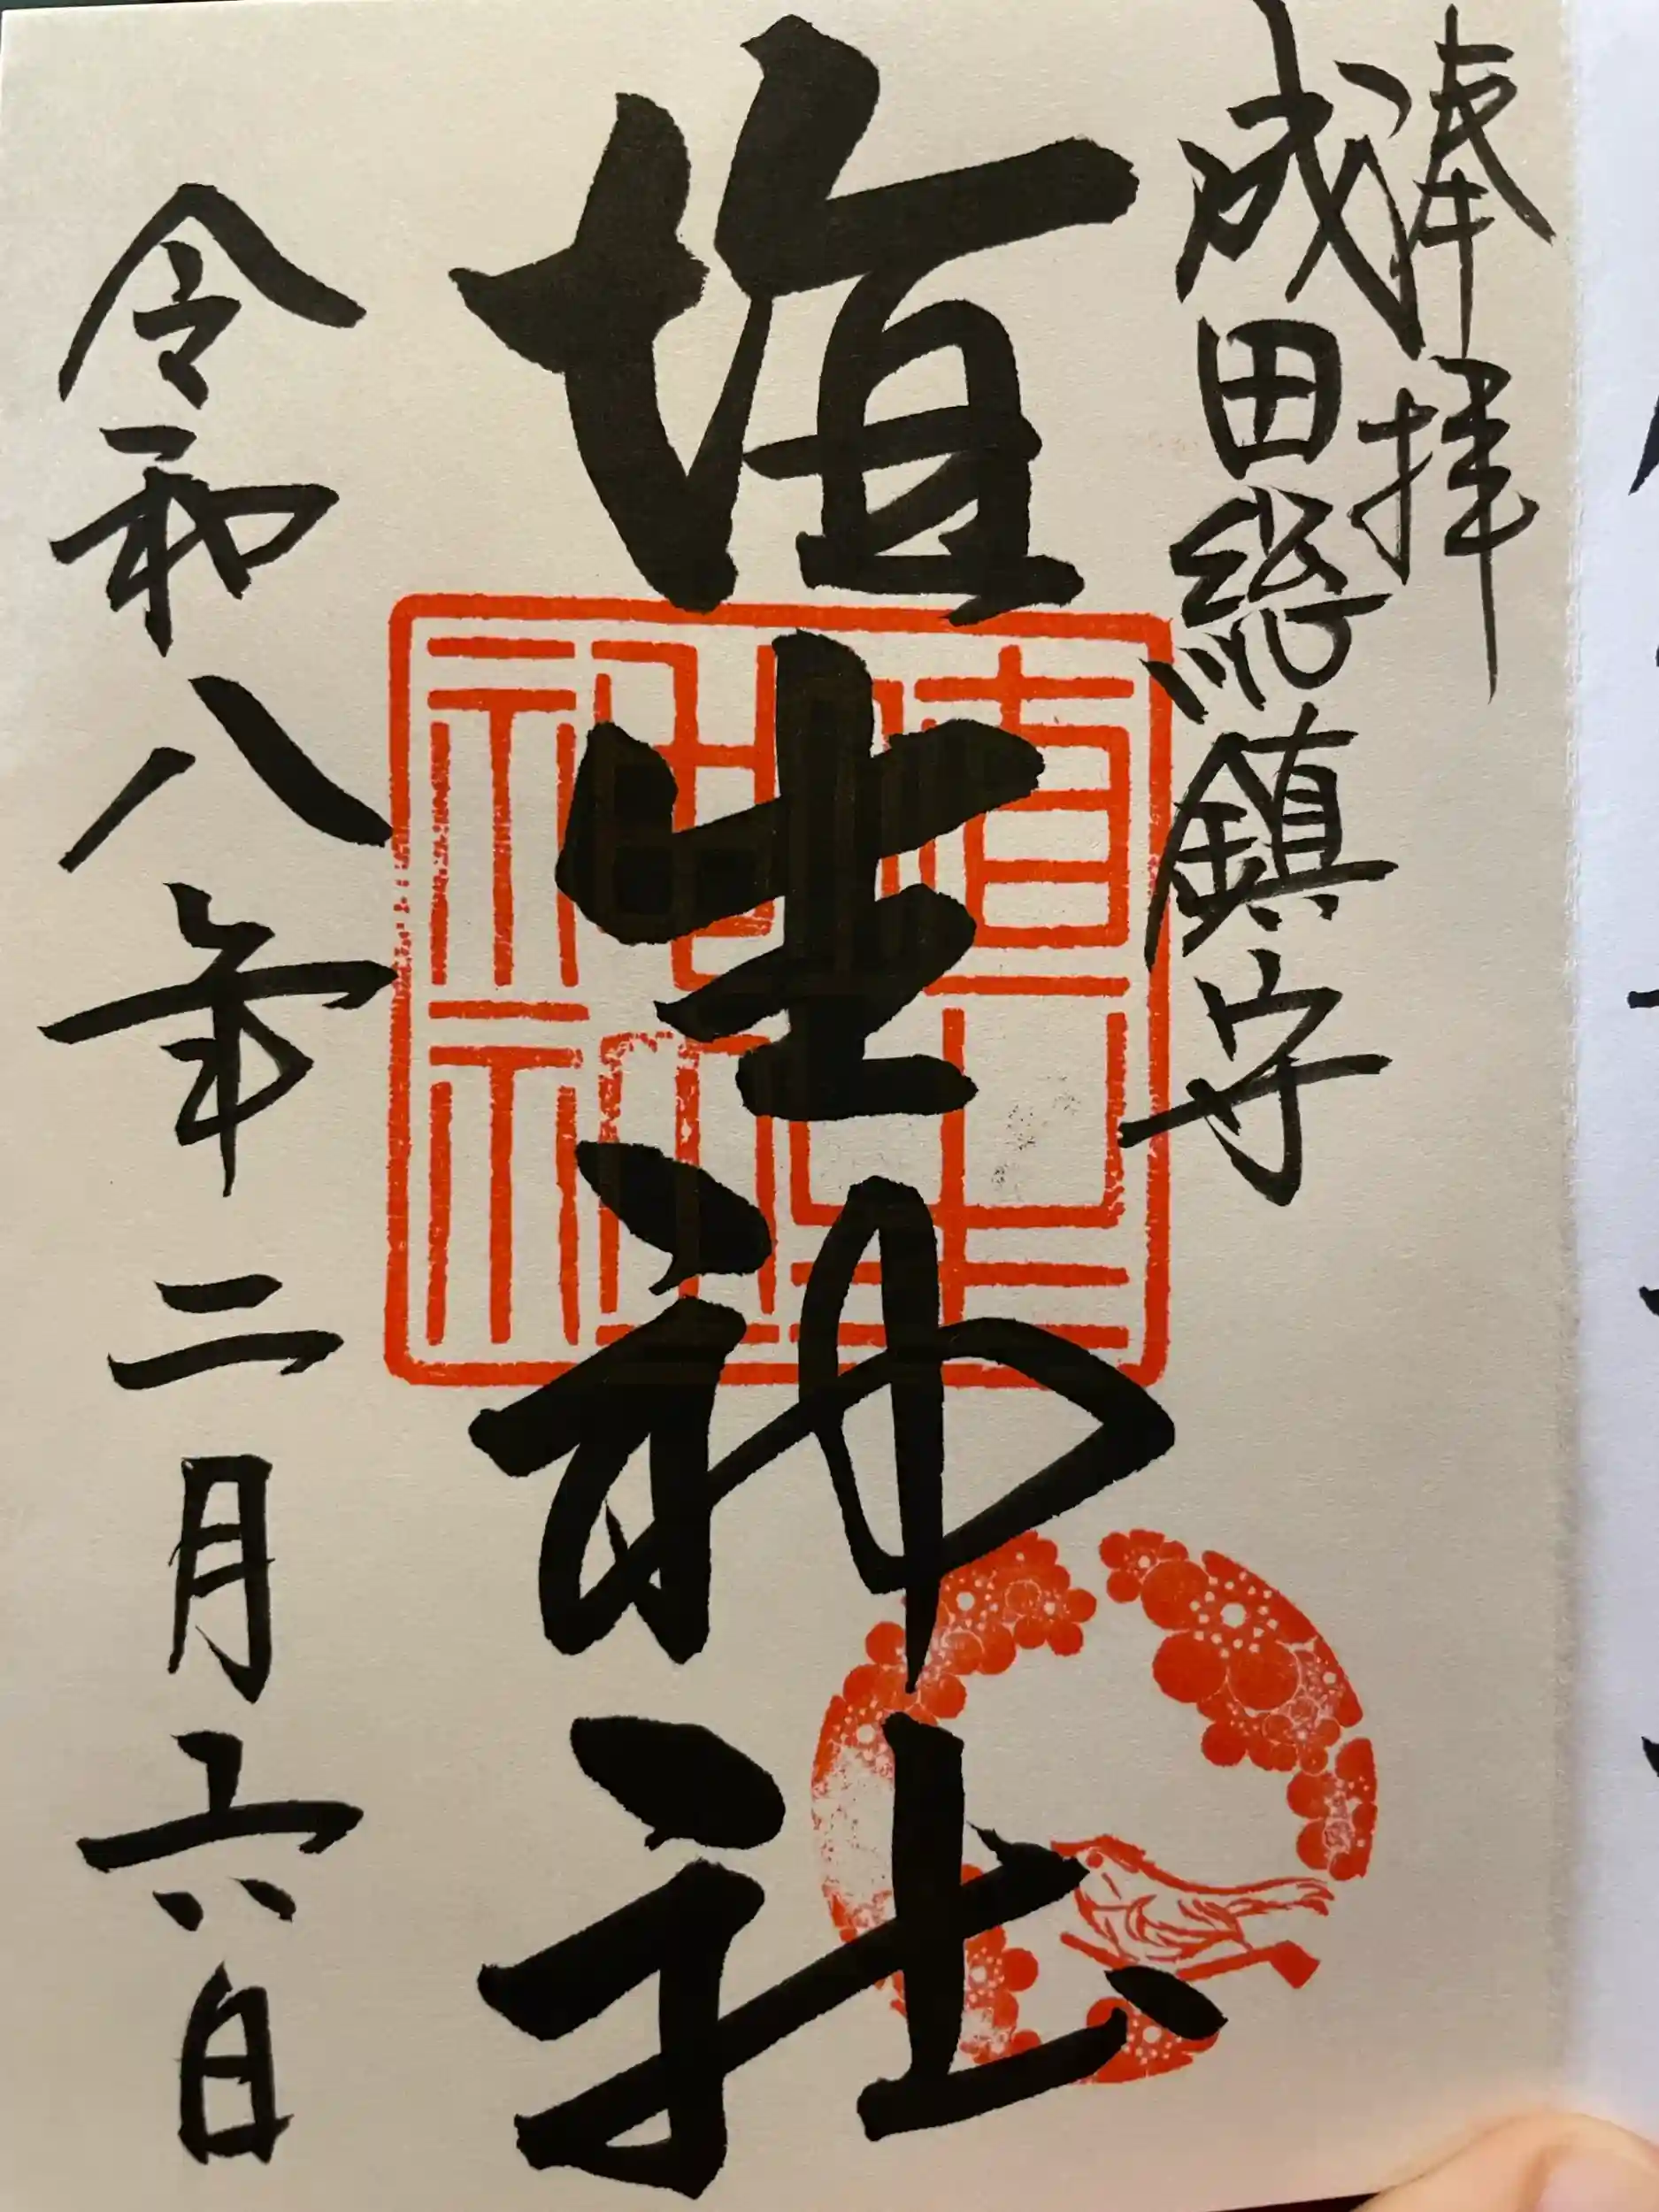 奉拝
成田総鎮守
埴生神社
令和八年二月六日
埴生
神社